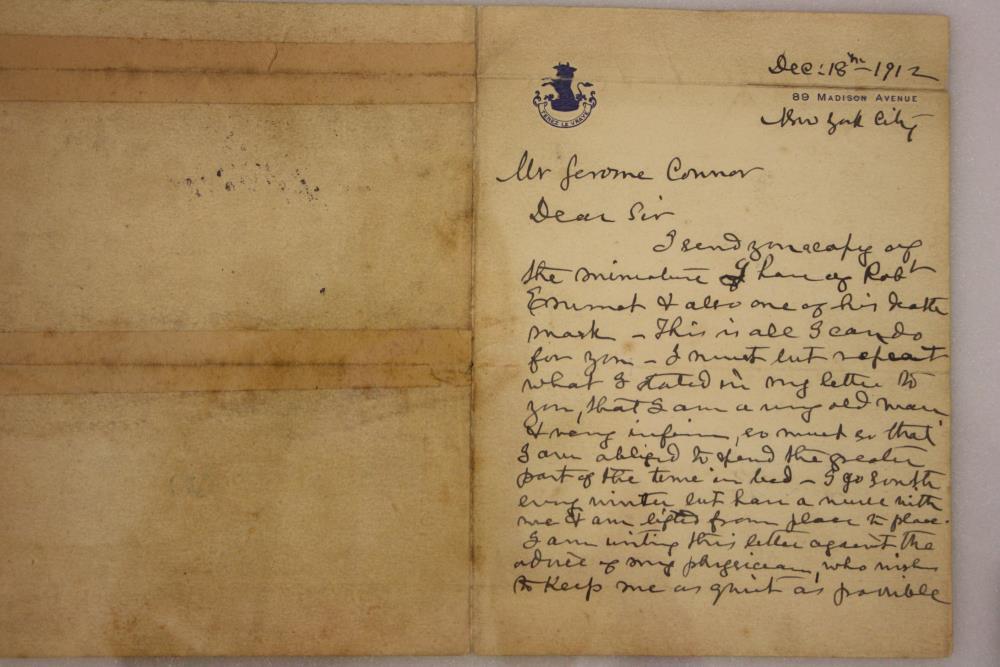 Dec: 18th 1912
TENEZ LE VRAYE
89 MADISON AVENUE
New York City
Mr Jerome Connor
Dear Sir
I send you a copy of
the miniature I have of Robt
Emmet & also one of his death
mask – This is all I can do
for you – I must but repeat
what I stated in my letter to
you, that I am a very old man
& very infirm, so much so that
I am obliged to spend the greater
part of the time in bed – I go South
every winter but have a nurse with
me & am lifted from place to place.
I am writing this letter against the
advice of my physician, who wishes
to keep me as quiet as possible